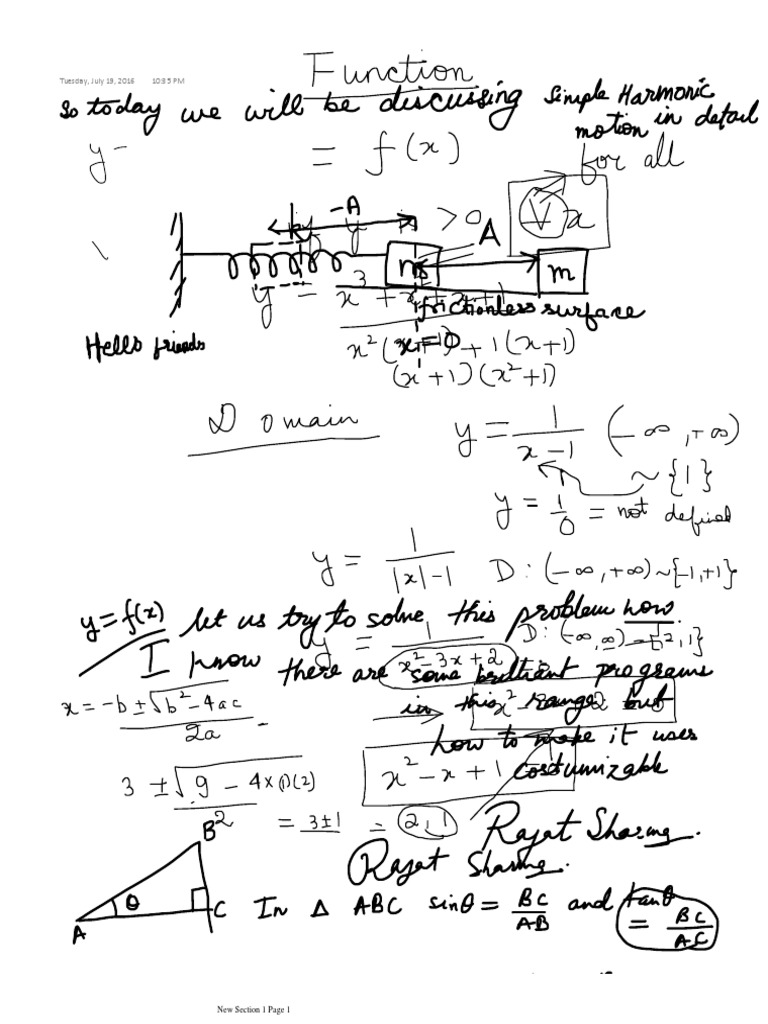 Function
Tuesday, July 19, 2016 10:35 PM
So today we will be discussing simple Harmonic
motion in detail
y = f(x) for all
∀ x
-A
k y > 0 A
m m
y = x³ +
frictionless surface
Hello friends
x² ( + 1(x+1)
x=0
(x+1)(x²+1)
Domain
y = 1/(x-1) (-∞, +∞)
~ {1}
y = 1/0 = not defined
y = 1/(|x|-1) D: (-∞, +∞) ~ {-1, +1}
y = f(x) let us try to solve this problem now.
y = 1/(x²-3x+2) D: (-∞, ∞) - {2, 1}
I know there are some brilliant programs
x = -b ± √(b²-4ac) / 2a
in this range but
how to make it uses
costumizable
x² - x + 1
3 ± √(9 - 4×(1)(2)) / 2 = 3±1 = 2, 1
Rajat Sharing.
Rajat Sharing.
B
θ
A
C
In Δ ABC sinθ = BC/AB and tanθ
= BC/AC
New Section 1 Page 1